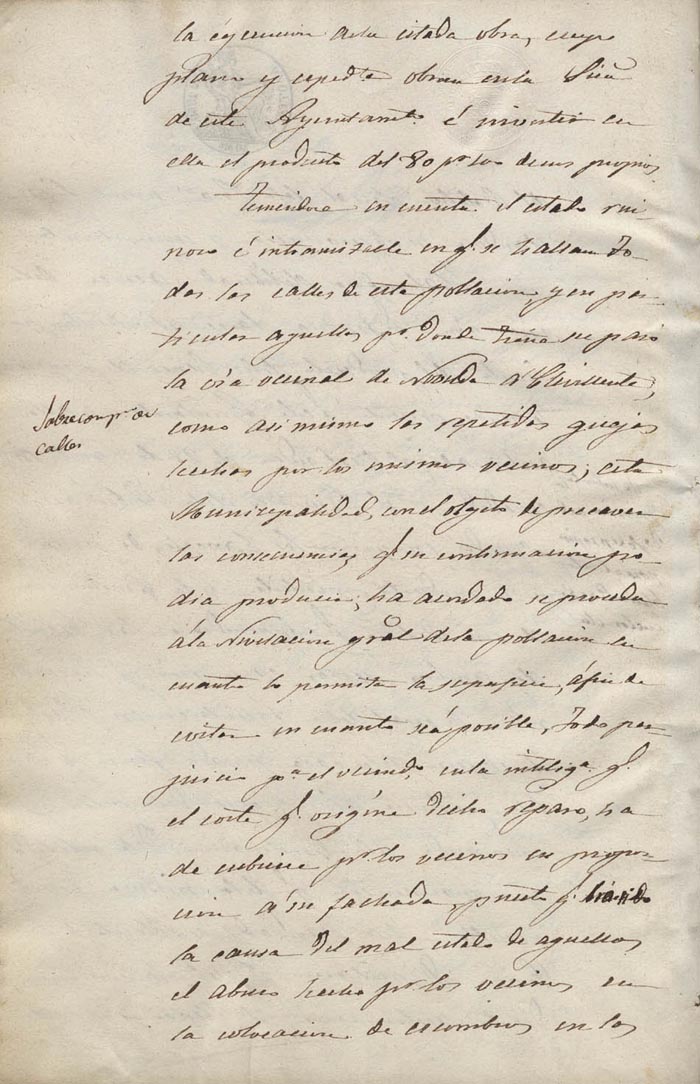 la ejecucion de la citada obra, cuyo
plano y expedte obran en la Sria
de este Ayuntamto é invertir en
ella el producto del 80 pr 100 de sus propios
Teniendose en cuenta el estado rui
noso é intransitable en q.e se hallan To-
das las calles de esta poblacion, y en par-
ticular aquellas pr donde tiene su paso
la via vecinal de Novelda á Crevillente,
Sobre comp.n de
calles
como asi mismo las repetidas quejas
hechas por los mismos vecinos; esta
Municipalidad, con el objeto de precaver
las consecuencias q.e su continuacion po
dia producir, ha acordado se proceda
á la Nivelacion gral de la poblacion en
cuanto lo permita la superficie, á fin de
evitar en cuanto sea posible, Todo per-
juicio pa el vecindo, en la inteliga q.e
el coste q.e origine dicho reparo, ha
de cubrirse pr los vecinos en propor-
cion á su fachada, puesto q.e ha sido
la causa del mal estado de aquellas
el abuso hecho pr los vecinos en
la colocacion de escombros en las